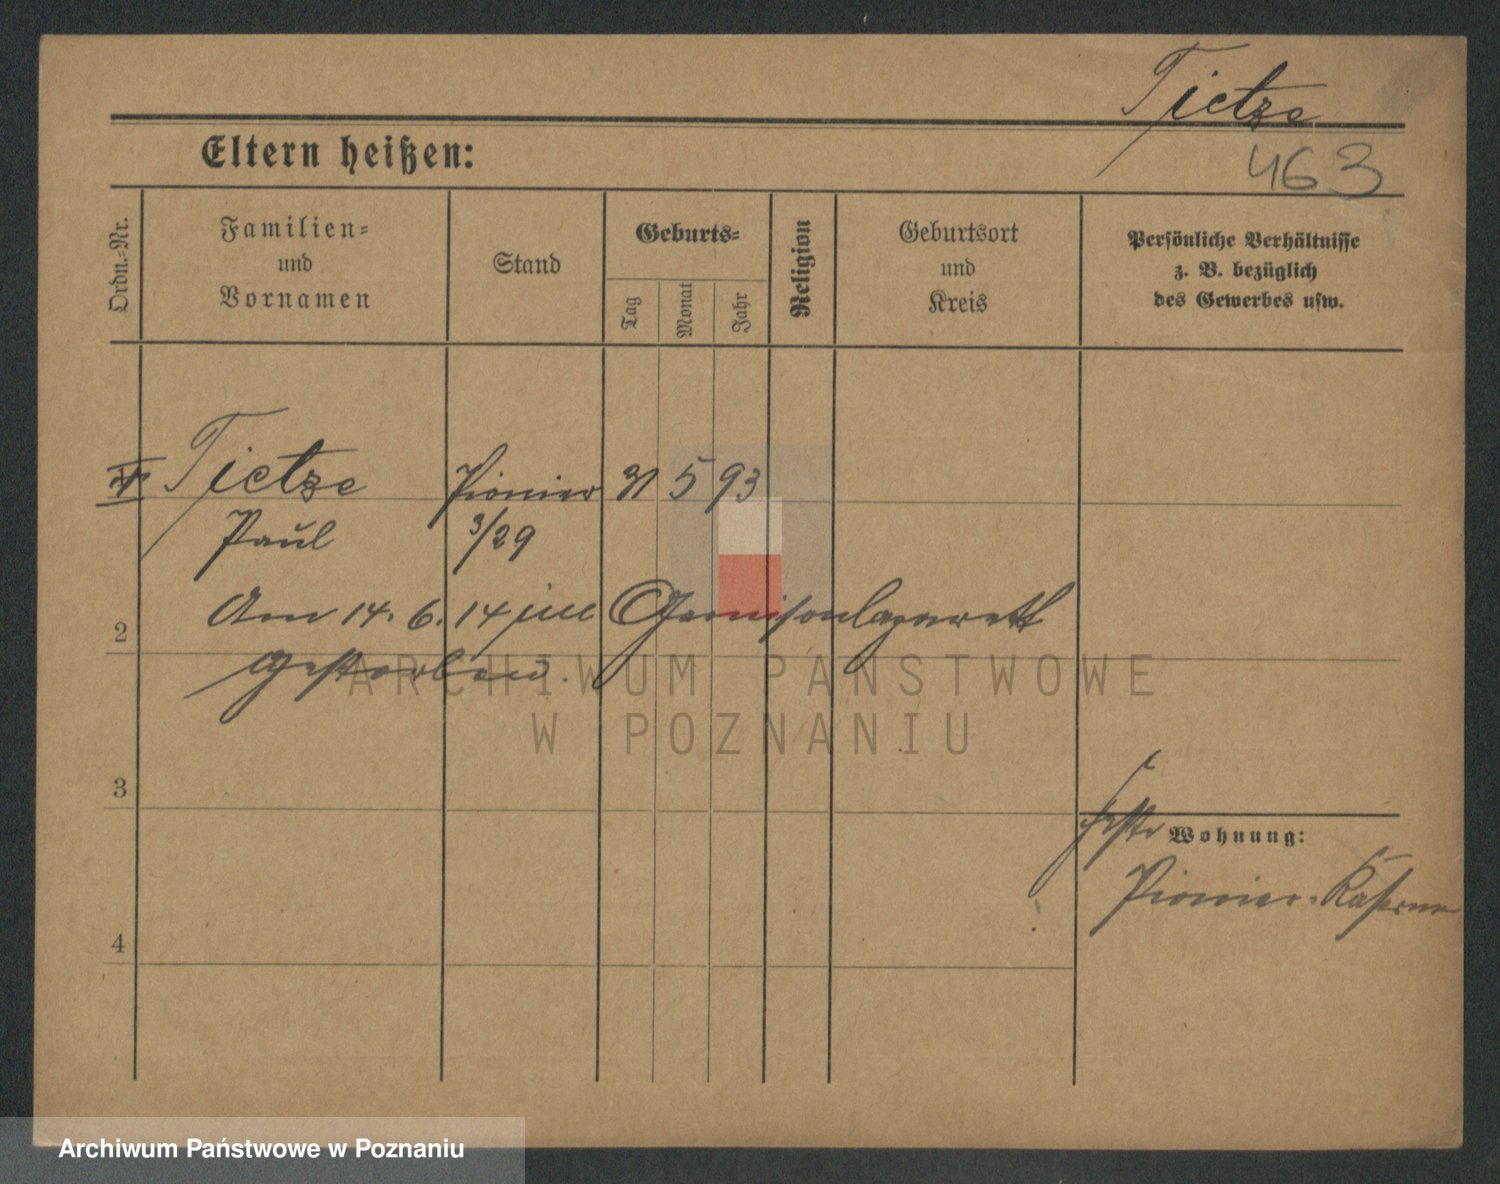 Tietze
Eltern heißen:
463
Ordn.-Nr.
Familien-
und
Vornamen
Stand
Geburts-
Tag
Monat
Jahr
Religion
Geburtsort
und
Kreis
Persönliche Verhältnisse
z. B. bezüglich
des Gewerbes usw.
Tietze Pionier 31 5 93
Paul 3/29
Am 14. 6. 14 im Garnisonlazarett
2
gestorben.
ARCHIWUM PAŃSTWOWE
W POZNANIU
3
Wohnung:
Pionier-Kaserne
4
Archiwum Państwowe w Poznaniu